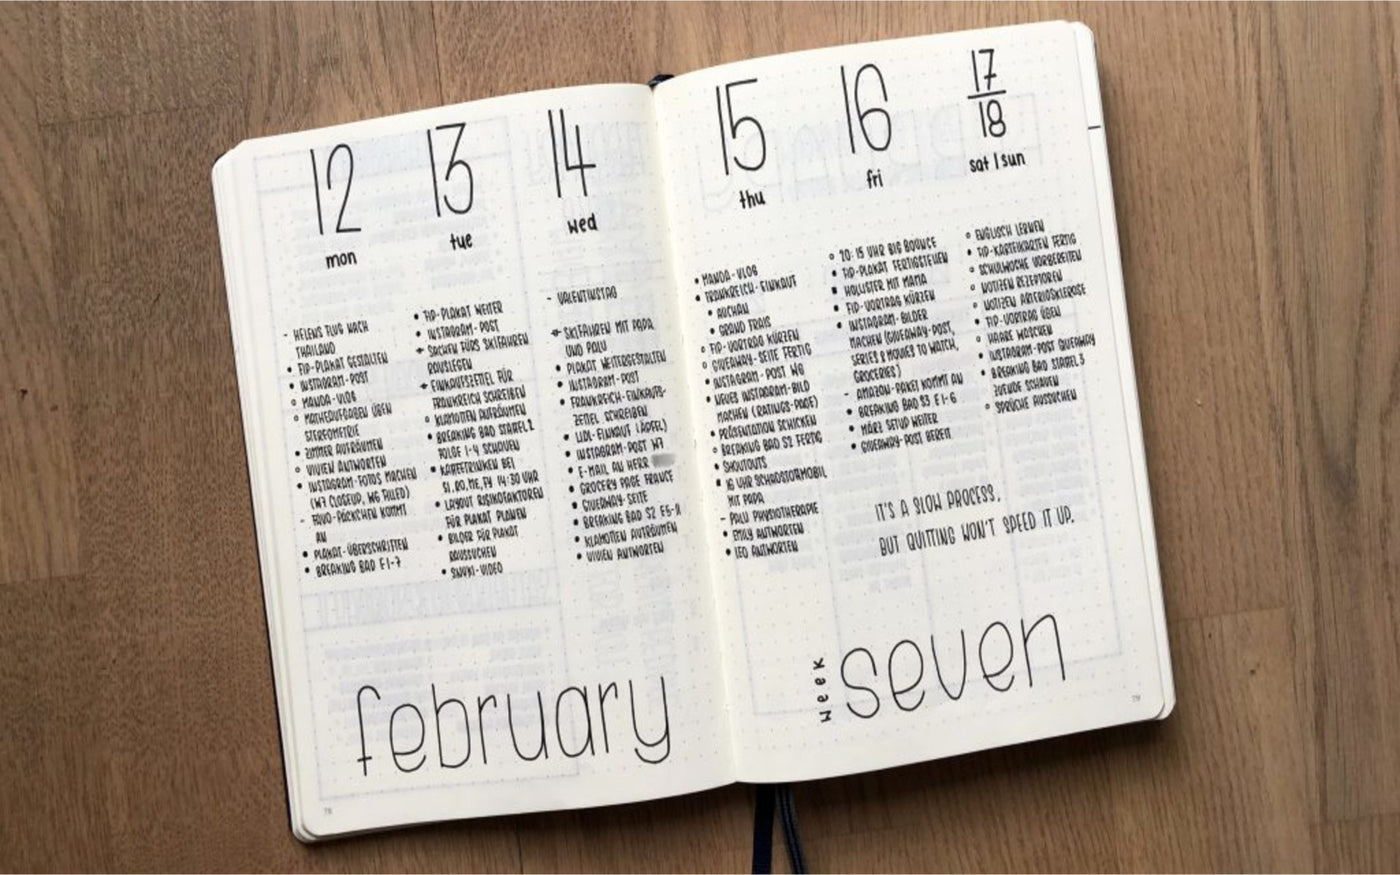 12
mon
- HELENS FLUG NACH
THAILAND
• FIP-PLAKAT GESTALTEN
• INSTAGRAM-POST
○ MANDA-VLOG
○ MATHEAUFGABEN ÜBEN
STEREOMETRIE
• ZIMMER AUFRÄUMEN
○ VIVIEN ANTWORTEN
• INSTAGRAM-FOTOS MACHEN
(W7 CLOSEUP, W6 FILLED)
- FAVO-PÄCKCHEN KOMMT
AN
• PLAKAT-ÜBERSCHRIFTEN
• BREAKING BAD E1-7
13
tue
• FIP-PLAKAT WEITER
• INSTAGRAM-POST
• SACHEN FÜRS SKIFAHREN
RAUSLEGEN
• EINKAUFSZETTEL FÜR
FRANKREICH SCHREIBEN
○ KLAMOTTEN AUFRÄUMEN
• BREAKING BAD STAFFEL 2
FOLGE 1-4 SCHAUEN
• KAFFEETRINKEN BEI
SI, RO, ME, FY 14:30 UHR
• LAYOUT RISIKOFAKTOREN
FÜR PLAKAT PLANEN
• BILDER FÜR PLAKAT
RAUSSUCHEN
• SNUKI-VIDEO
14
wed
- VALENTINSTAG
• SKIFAHREN MIT PAPA
UND PALU
• PLAKAT WEITERGESTALTEN
• INSTAGRAM-POST
• FRANKREICH-EINKAUFS-
ZETTEL SCHREIBEN
• LIDL-EINKAUF (ÄPFEL)
• INSTAGRAM-POST W7
• E-MAIL AN HERR
• GROCERY PAGE FRANCE
• GIVEAWAY-SEITE
• BREAKING BAD S2 E5-11
• KLAMOTTEN AUFRÄUMEN
• VIVIEN ANTWORTEN
february
78
15
thu
• MANDA-VLOG
• FRANKREICH-EINKAUF
• AUCHAN
• GRAND FRAIS
○ FIP-VORTRAG KÜRZEN
○ GIVEAWAY-SEITE FERTIG
• INSTAGRAM-POST W8
• NEUES INSTAGRAM-BILD
MACHEN (RATINGS-PAGE)
• PRÄSENTATION SCHICKEN
○ BREAKING BAD S2 FERTIG
• SHOUTOUTS
▪ 16 UHR SCHADSTOFFMOBIL
MIT PAPA
- PALU PHYSIOTHERAPIE
• EMILY ANTWORTEN
• LEO ANTWORTEN
16
fri
○ 20:15 UHR BIG BOUNCE
• FIP-PLAKAT FERTIGSTELLEN
▪ HOLLISTER MIT MAMA
• FIP-VORTRAG KÜRZEN
• INSTAGRAM-BILDER
MACHEN (GIVEAWAY-POST,
SERIES & MOVIES TO WATCH,
GROCERIES)
- AMAZON-PAKET KOMMT AN
• BREAKING BAD S3 E1-6
• MÄRZ SETUP WEITER
• GIVEAWAY-POST BEREIT
17
18
sat | sun
○ ENGLISCH LERNEN
• FIP-KARTEIKARTEN FERTIG
○ SCHULWOCHE VORBEREITEN
○ NOTIZEN REZEPTOREN
○ NOTIZEN ARTERIOSKLEROSE
• FIP-VORTRAG ÜBEN
○ HAARE WASCHEN
• INSTAGRAM-POST GIVEAWAY
• BREAKING BAD STAFFEL 3
ZUENDE SCHAUEN
○ SPRÜCHE AUSSUCHEN
IT'S A SLOW PROCESS,
BUT QUITTING WON'T SPEED IT UP.
week
seven
79